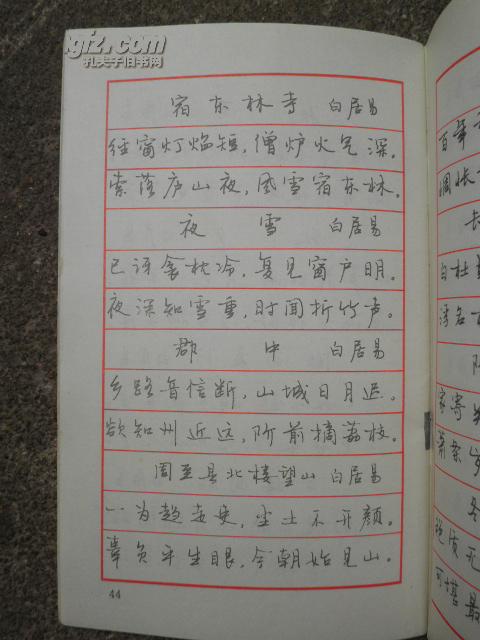 gjz.com
孔夫子旧书网
宿东林寺 白居易
经窗灯焰短，僧炉火气深。
索落庐山夜，风雪宿东林。
夜雪 白居易
已讶衾枕冷，复见窗户明。
夜深知雪重，时闻折竹声。
郡中 白居易
乡路音信断，山城日月迟。
欲知州近远，阶前摘荔枝。
周至县北楼望山 白居易
一为趋走吏，尘土不开颜。
辜负平生眼，今朝始见山。
44
百年
惆怅
长
白社
涤名
阶
家寄
萧条岁
冬
艳质无
可堪最